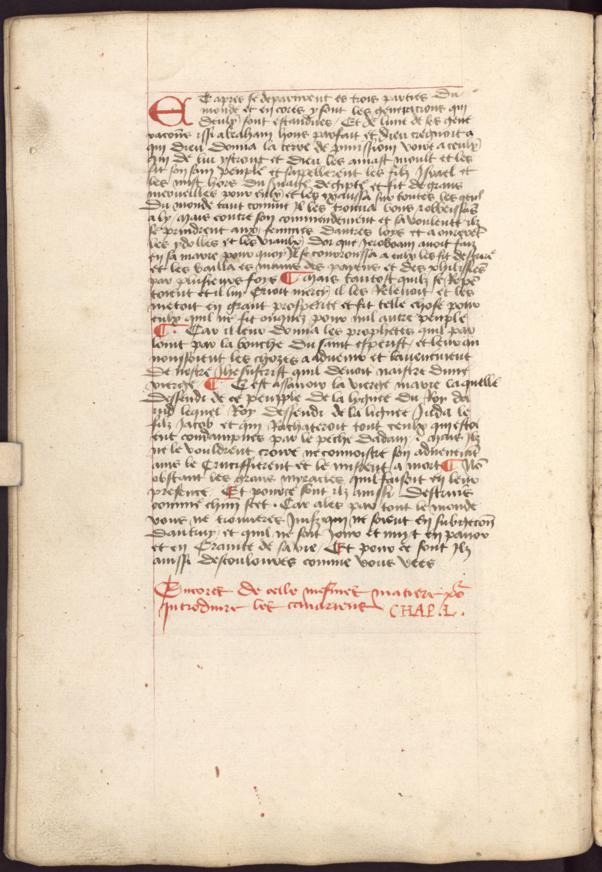 Et apres se departirent es trois parties Du
monde et en cores y sont les generacions qui
Deulx sont estandues · Et de lune de ses gene
racons issi abraham hons parfait et dieu creignoit a
qui dieu donna la terre de promission voire a ceulx
qui de lui ystront et dieu les amast moult et les
fit son sain peuple et sappellerent les filz Israel et
les mist hors du de egipte et fit de grans
merveilles pour eulx et les sur toutes les gens
Du monde tant comme Il les trouva bons obeissans
a ly mais contre son commendement et sa voulente ilz
se prindrent aux femmes dautres loys et
les ydolles et les vieaulx Dor que Jeroboam avoit faiz
en sa pour quoy Il se courroussa a eulx les fit destruire
et les bailla es mains des payens et des philistiens
par plusieurs foys ¶ mais tantost quilz se Repe
toient et il lui Crioit mercy il les Relevoit et les
metoit en grant prosperite et fit telle chose pour
eulx quil ne fit oncques pour nul autre peuple
¶ Car il leur donna les prophetes quil par
loient par la bouche Du saint esperit et leur
les chozes a advenir et ladvenement
de nostre Jhesucrist quil devoit naistre dune
vierge ¶ Cest assavoir la vierge marie laquelle
dessendi de ce peupple de la lignee du Roy da
vid lequel Roy dessendi de la lignee Juda le
filz Jacob et qui Rachateroit tout ceulx questoi
ent condampnes par le peche dadam · mais ilz
ne le vouldrent croire ne connoistre son
ains le Crucifierent et le misrent a mort ¶ Non
obstant les grans myracles quil faisoit en leur
presence Et pource sont ilz ainssi Destruis
comme chun scet · Car ales par tout le monde
vous ne trouveres Juifz qui ne soient en subgecon
Dautruy et quil ne soit Jour et nuyt en paour
et en Crainte de sa vie Et pour ce sont Ilz
ainssi comme vous vees
Encores de celle mesmes matiere po
introduire les CHAP. L.